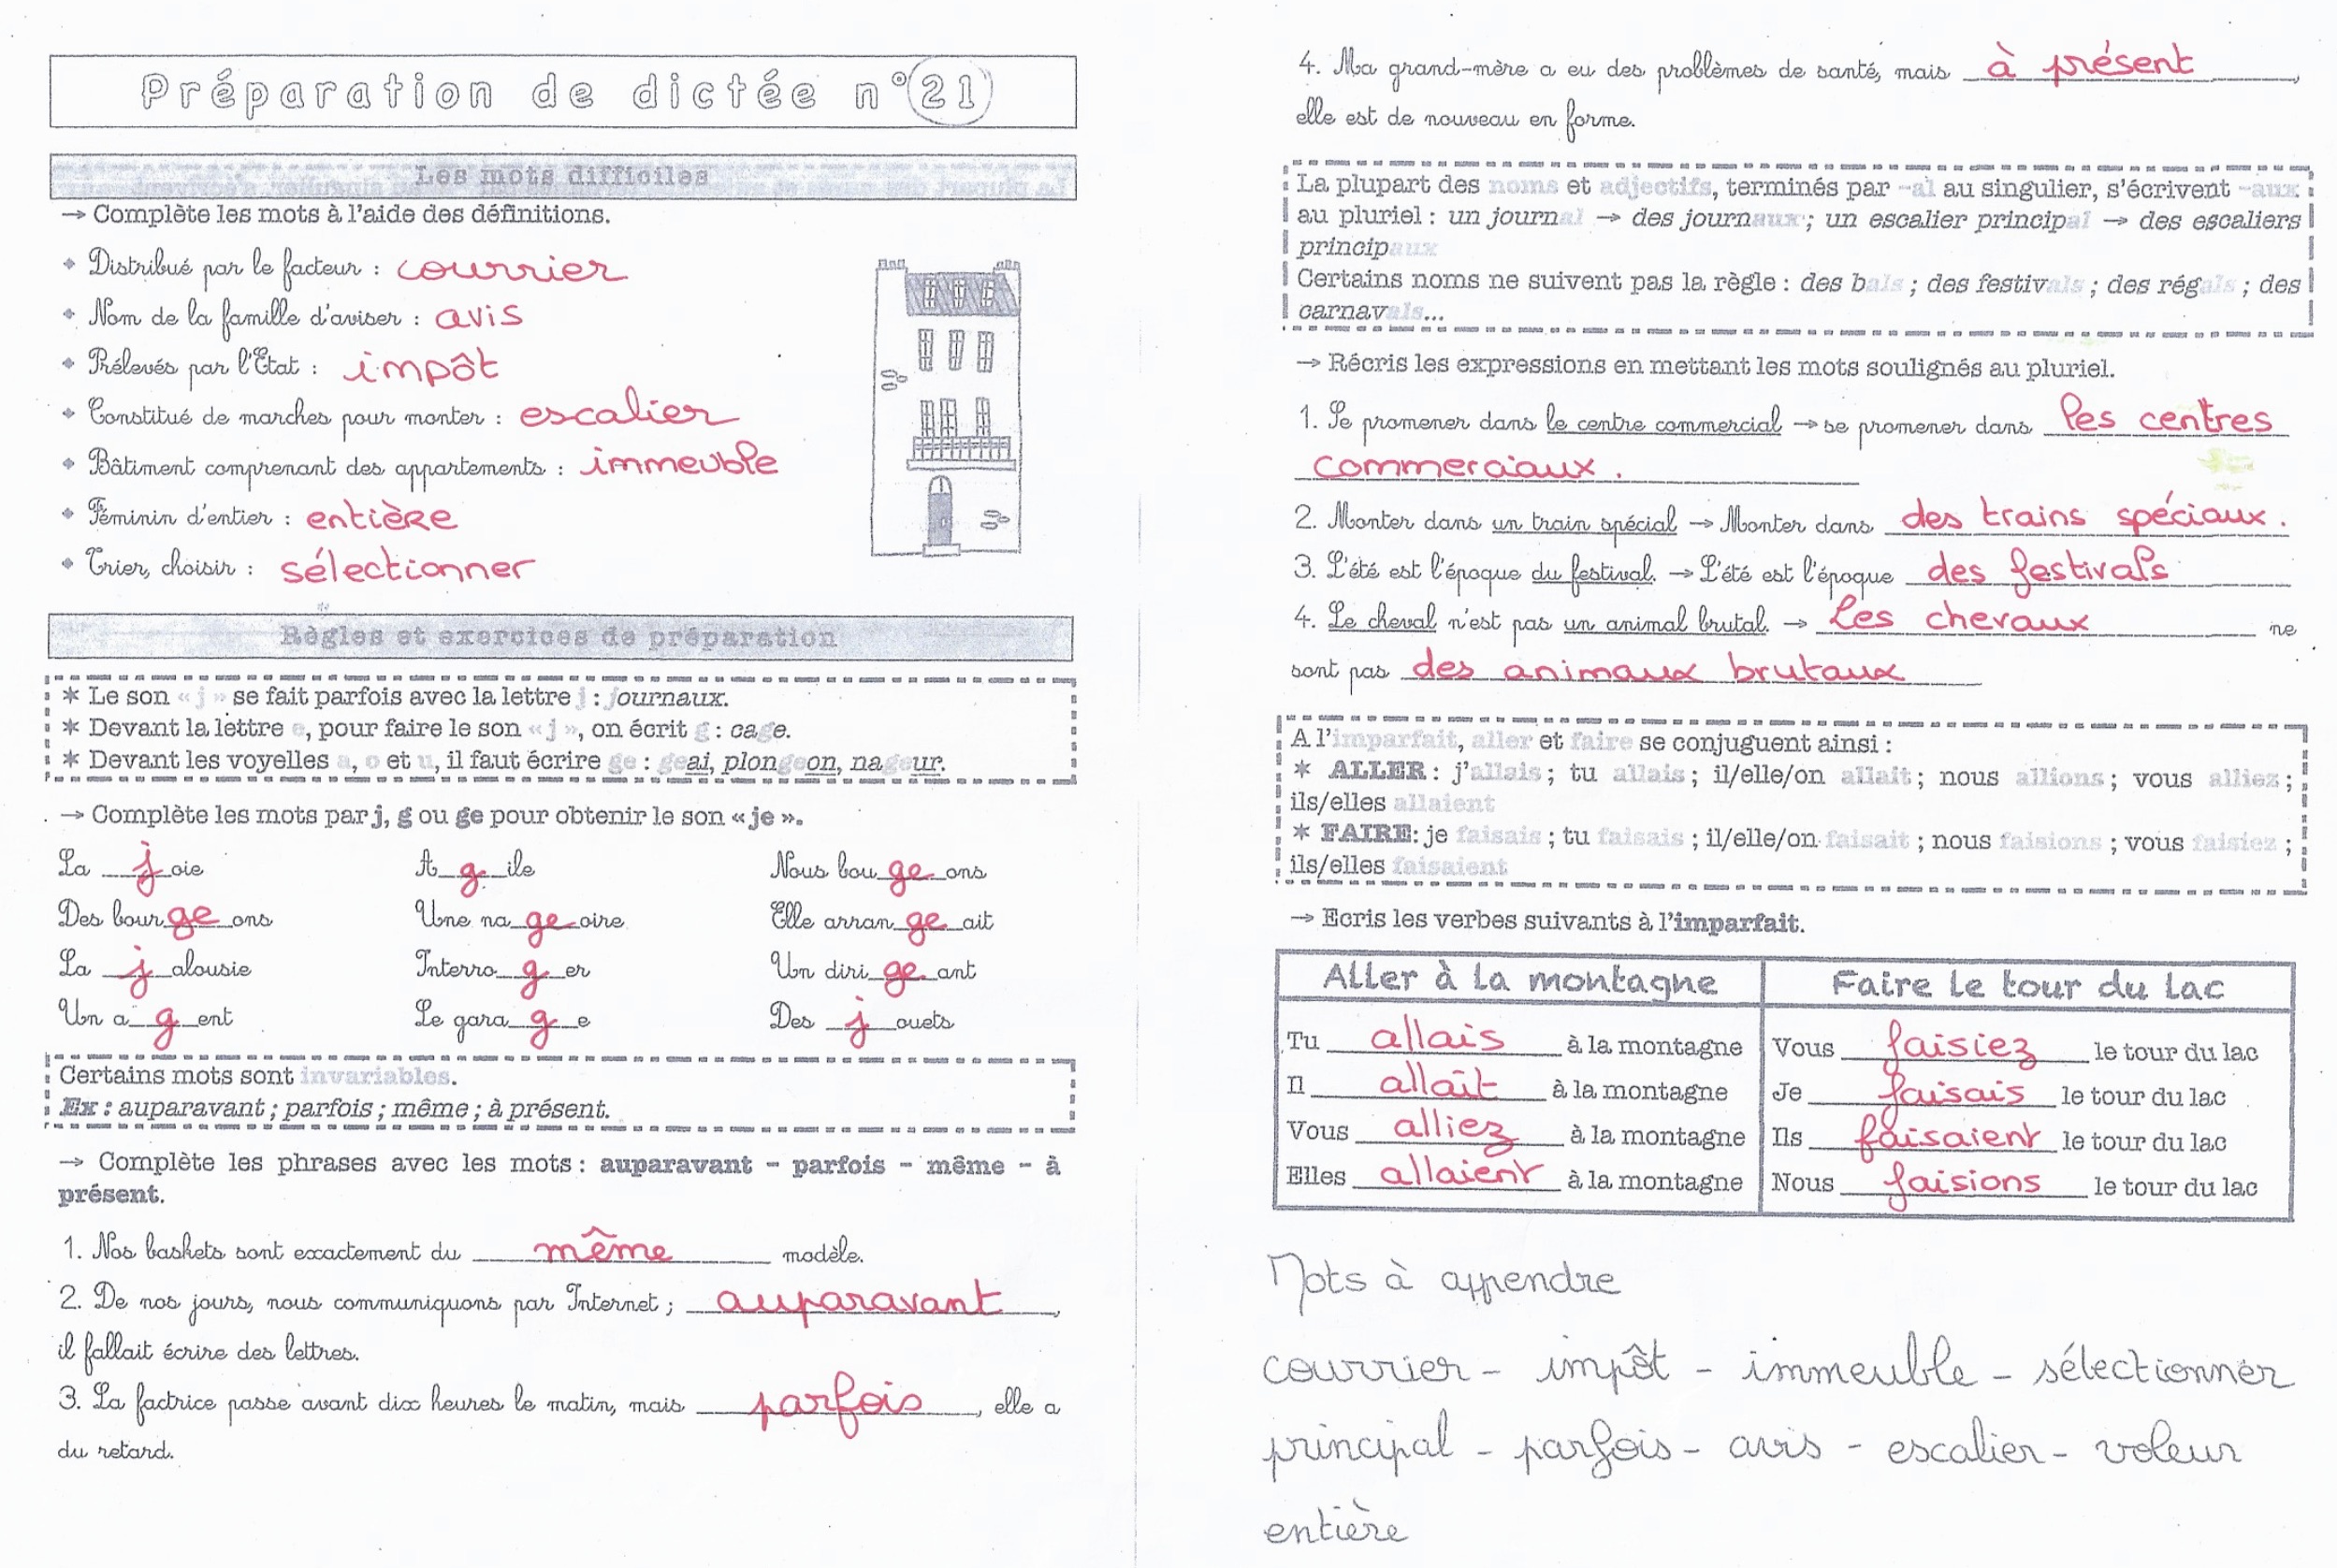 Préparation de dictée n°21
Les mots difficiles
→ Complète les mots à l'aide des définitions.
❖ Distribué par le facteur : courrier
❖ Nom de la famille d'aviser : avis
❖ Prélevés par l'Etat : impôt
❖ Constitué de marches pour monter : escalier
❖ Bâtiment comprenant des appartements : immeuble
❖ Féminin d'entier : entière
❖ Trier, choisir : sélectionner
Règles et exercices de préparation
* Le son « j » se fait parfois avec la lettre j : journaux.
* Devant la lettre e, pour faire le son « j », on écrit g : cage.
* Devant les voyelles a, o et u, il faut écrire ge : geai, plongeon, nageur.
→ Complète les mots par j, g ou ge pour obtenir le son « je ».
La joie A gile Nous bougeons
Des bourgeons Une nageoire Elle arrangeait
La jalousie Interroger Un dirigeant
Un agent Le garage Des jouets
Certains mots sont invariables.
Ex : auparavant ; parfois ; même ; à présent.
→ Complète les phrases avec les mots : auparavant – parfois – même – à
présent.
1. Nos baskets sont exactement du même modèle.
2. De nos jours, nous communiquons par Internet ; auparavant,
il fallait écrire des lettres.
3. La factrice passe avant dix heures le matin, mais parfois, elle a
du retard.
4. Ma grand-mère a eu des problèmes de santé, mais à présent,
elle est de nouveau en forme.
La plupart des noms et adjectifs, terminés par -al au singulier, s'écrivent -aux
au pluriel : un journal → des journaux ; un escalier principal → des escaliers
principaux
Certains noms ne suivent pas la règle : des bals ; des festivals ; des régals ; des
carnavals...
→ Récris les expressions en mettant les mots soulignés au pluriel.
1. Se promener dans le centre commercial → se promener dans les centres
commerciaux.
2. Monter dans un train spécial → Monter dans des trains spéciaux.
3. L'été est l'époque du festival. → L'été est l'époque des festivals
4. Le cheval n'est pas un animal brutal. → Les chevaux ne
sont pas des animaux brutaux
A l'imparfait, aller et faire se conjuguent ainsi :
* ALLER : j'allais ; tu allais ; il/elle/on allait ; nous allions ; vous alliez ;
ils/elles allaient
* FAIRE : je faisais ; tu faisais ; il/elle/on faisait ; nous faisions ; vous faisiez ;
ils/elles faisaient
→ Ecris les verbes suivants à l'imparfait.
Aller à la montagne Faire le tour du lac
Tu allais à la montagne Vous faisiez le tour du lac
Il allait à la montagne Je faisais le tour du lac
Vous alliez à la montagne Ils faisaient le tour du lac
Elles allaient à la montagne Nous faisions le tour du lac
Mots à apprendre
courrier - impôt - immeuble - sélectionner
principal - parfois - avis - escalier - voleur
entière